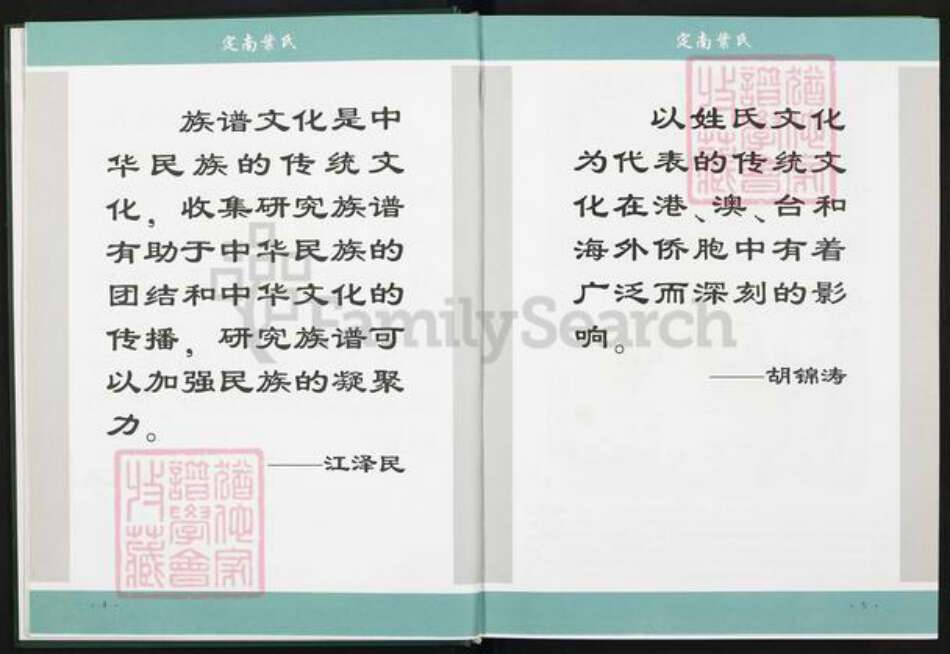 定南叶氏
族谱文化是中
华民族的传统文
化，收集研究族谱
有助于中华民族的
团结和中华文化的
传播，研究族谱可
以加强民族的凝聚
力。
——江泽民
譜學會
收藏
· 4 ·
定南叶氏
以姓氏文化
为代表的传统文
化在港、澳、台和
海外侨胞中有着
广泛而深刻的影
响。
——胡锦涛
譜學會
收藏
· 5 ·
FamilySearch